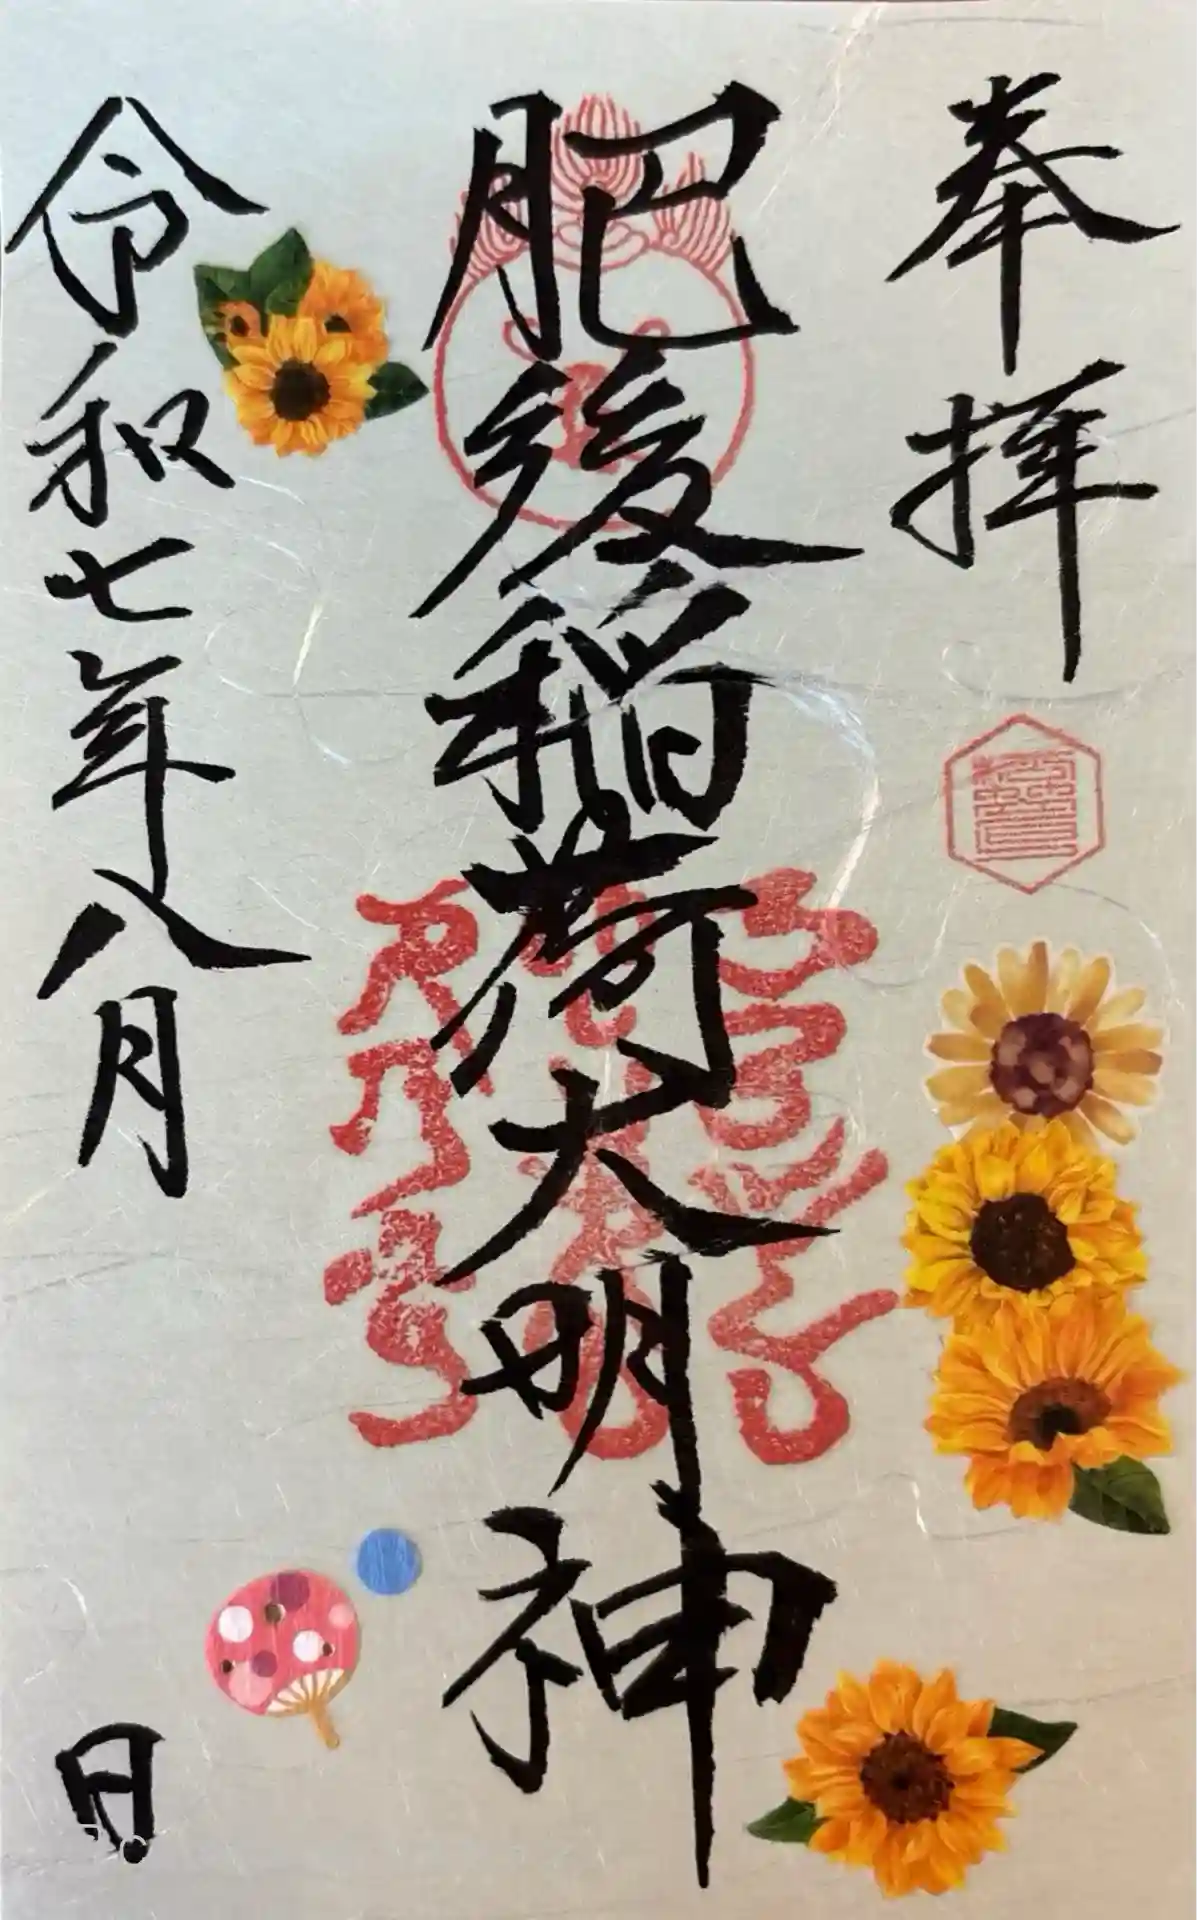 奉拝
肥後稲荷大明神
令和七年八月
日